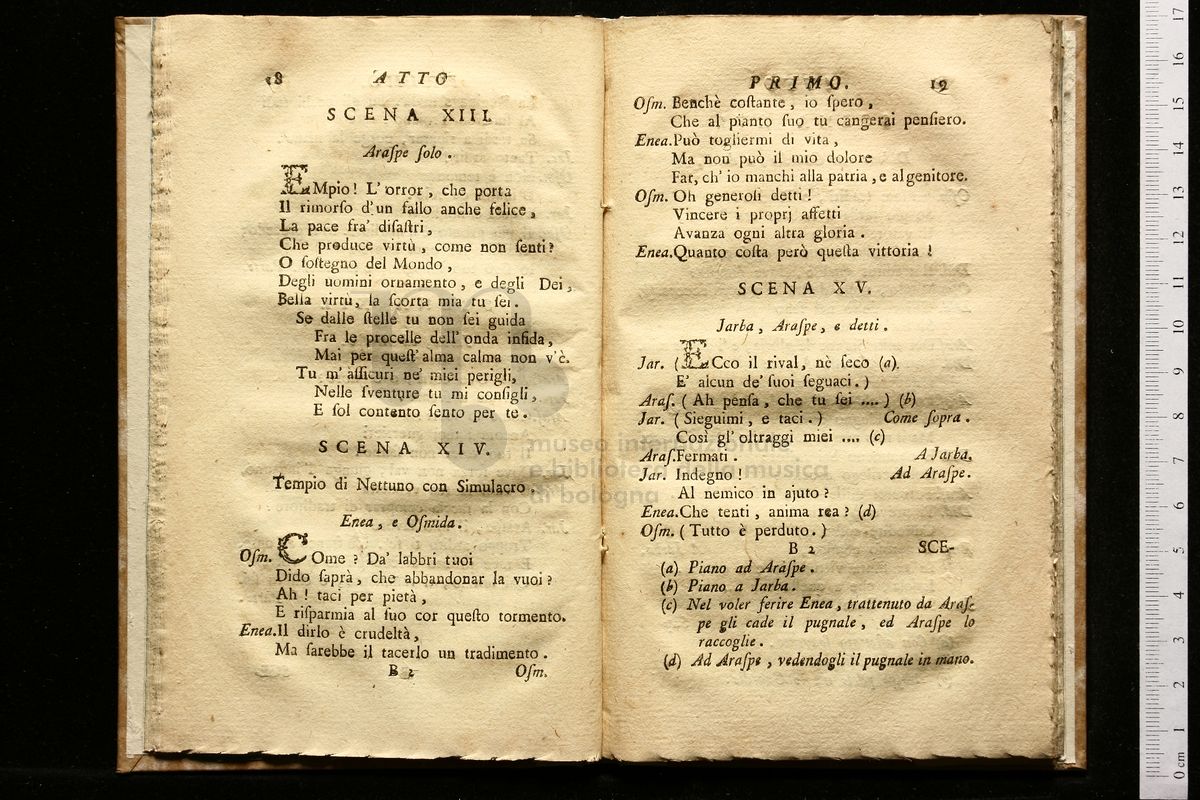 18 ATTO
SCENA XIII.
Araſpe ſolo.
EMpio! L'orror, che porta
Il rimorſo d'un fallo anche felice,
La pace fra' diſaſtri,
Che produce virtù, come non ſenti?
O ſoſtegno del Mondo,
Degli uomini ornamento, e degli Dei,
Bella virtù, la ſcorta mia tu ſei.
Se dalle ſtelle tu non ſei guida
Fra le procelle dell' onda infida,
Mai per queſt' alma calma non v'è.
Tu m' aſſicuri ne' miei perigli,
Nelle ſventure tu mi conſigli,
E ſol contento ſento per te.
SCENA XIV.
Tempio di Nettuno con Simulacro.
Enea, e Oſmida.
Oſm. COme? Da' labbri tuoi
Dido ſaprà, che abbandonar la vuoi?
Ah! taci per pietà,
E riſparmia al ſuo cor queſto tormento.
Enea. Il dirlo è crudeltà,
Ma ſarebbe il tacerlo un tradimento.
B 2 Oſm.
PRIMO. 19
Oſm. Benchè coſtante, io ſpero,
Che al pianto ſuo tu cangerai penſiero.
Enea. Può togliermi di vita,
Ma non può il mio dolore
Far, ch' io manchi alla patria, e al genitore.
Oſm. Oh generoſi detti!
Vincere i proprj affetti
Avanza ogni altra gloria.
Enea. Quanto coſta però queſta vittoria!
SCENA XV.
Jarba, Araſpe, e detti.
Jar. (ECco il rival, nè ſeco (a).
E' alcun de' ſuoi ſeguaci.)
Araſ. (Ah penſa, che tu ſei ....) (b)
Jar. (Sieguimi, e taci.) Come ſopra.
Così gl' oltraggi miei .... (c)
Araſ. Fermati. A Jarba.
Jar. Indegno! Ad Araſpe.
Al nemico in ajuto?
Enea. Che tenti, anima rea? (d)
Oſm. (Tutto è perduto.)
B 2 SCE-
(a) Piano ad Araſpe.
(b) Piano a Jarba.
(c) Nel voler ferire Enea, trattenuto da Araſ-
pe gli cade il pugnale, ed Araſpe lo
raccoglie.
(d) Ad Araſpe, vedendogli il pugnale in mano.
museo internazionale
e biblioteca della musica
di bologna
0 cm 1 2 3 4 5 6 7 8 9 10 11 12 13 14 15 16 17